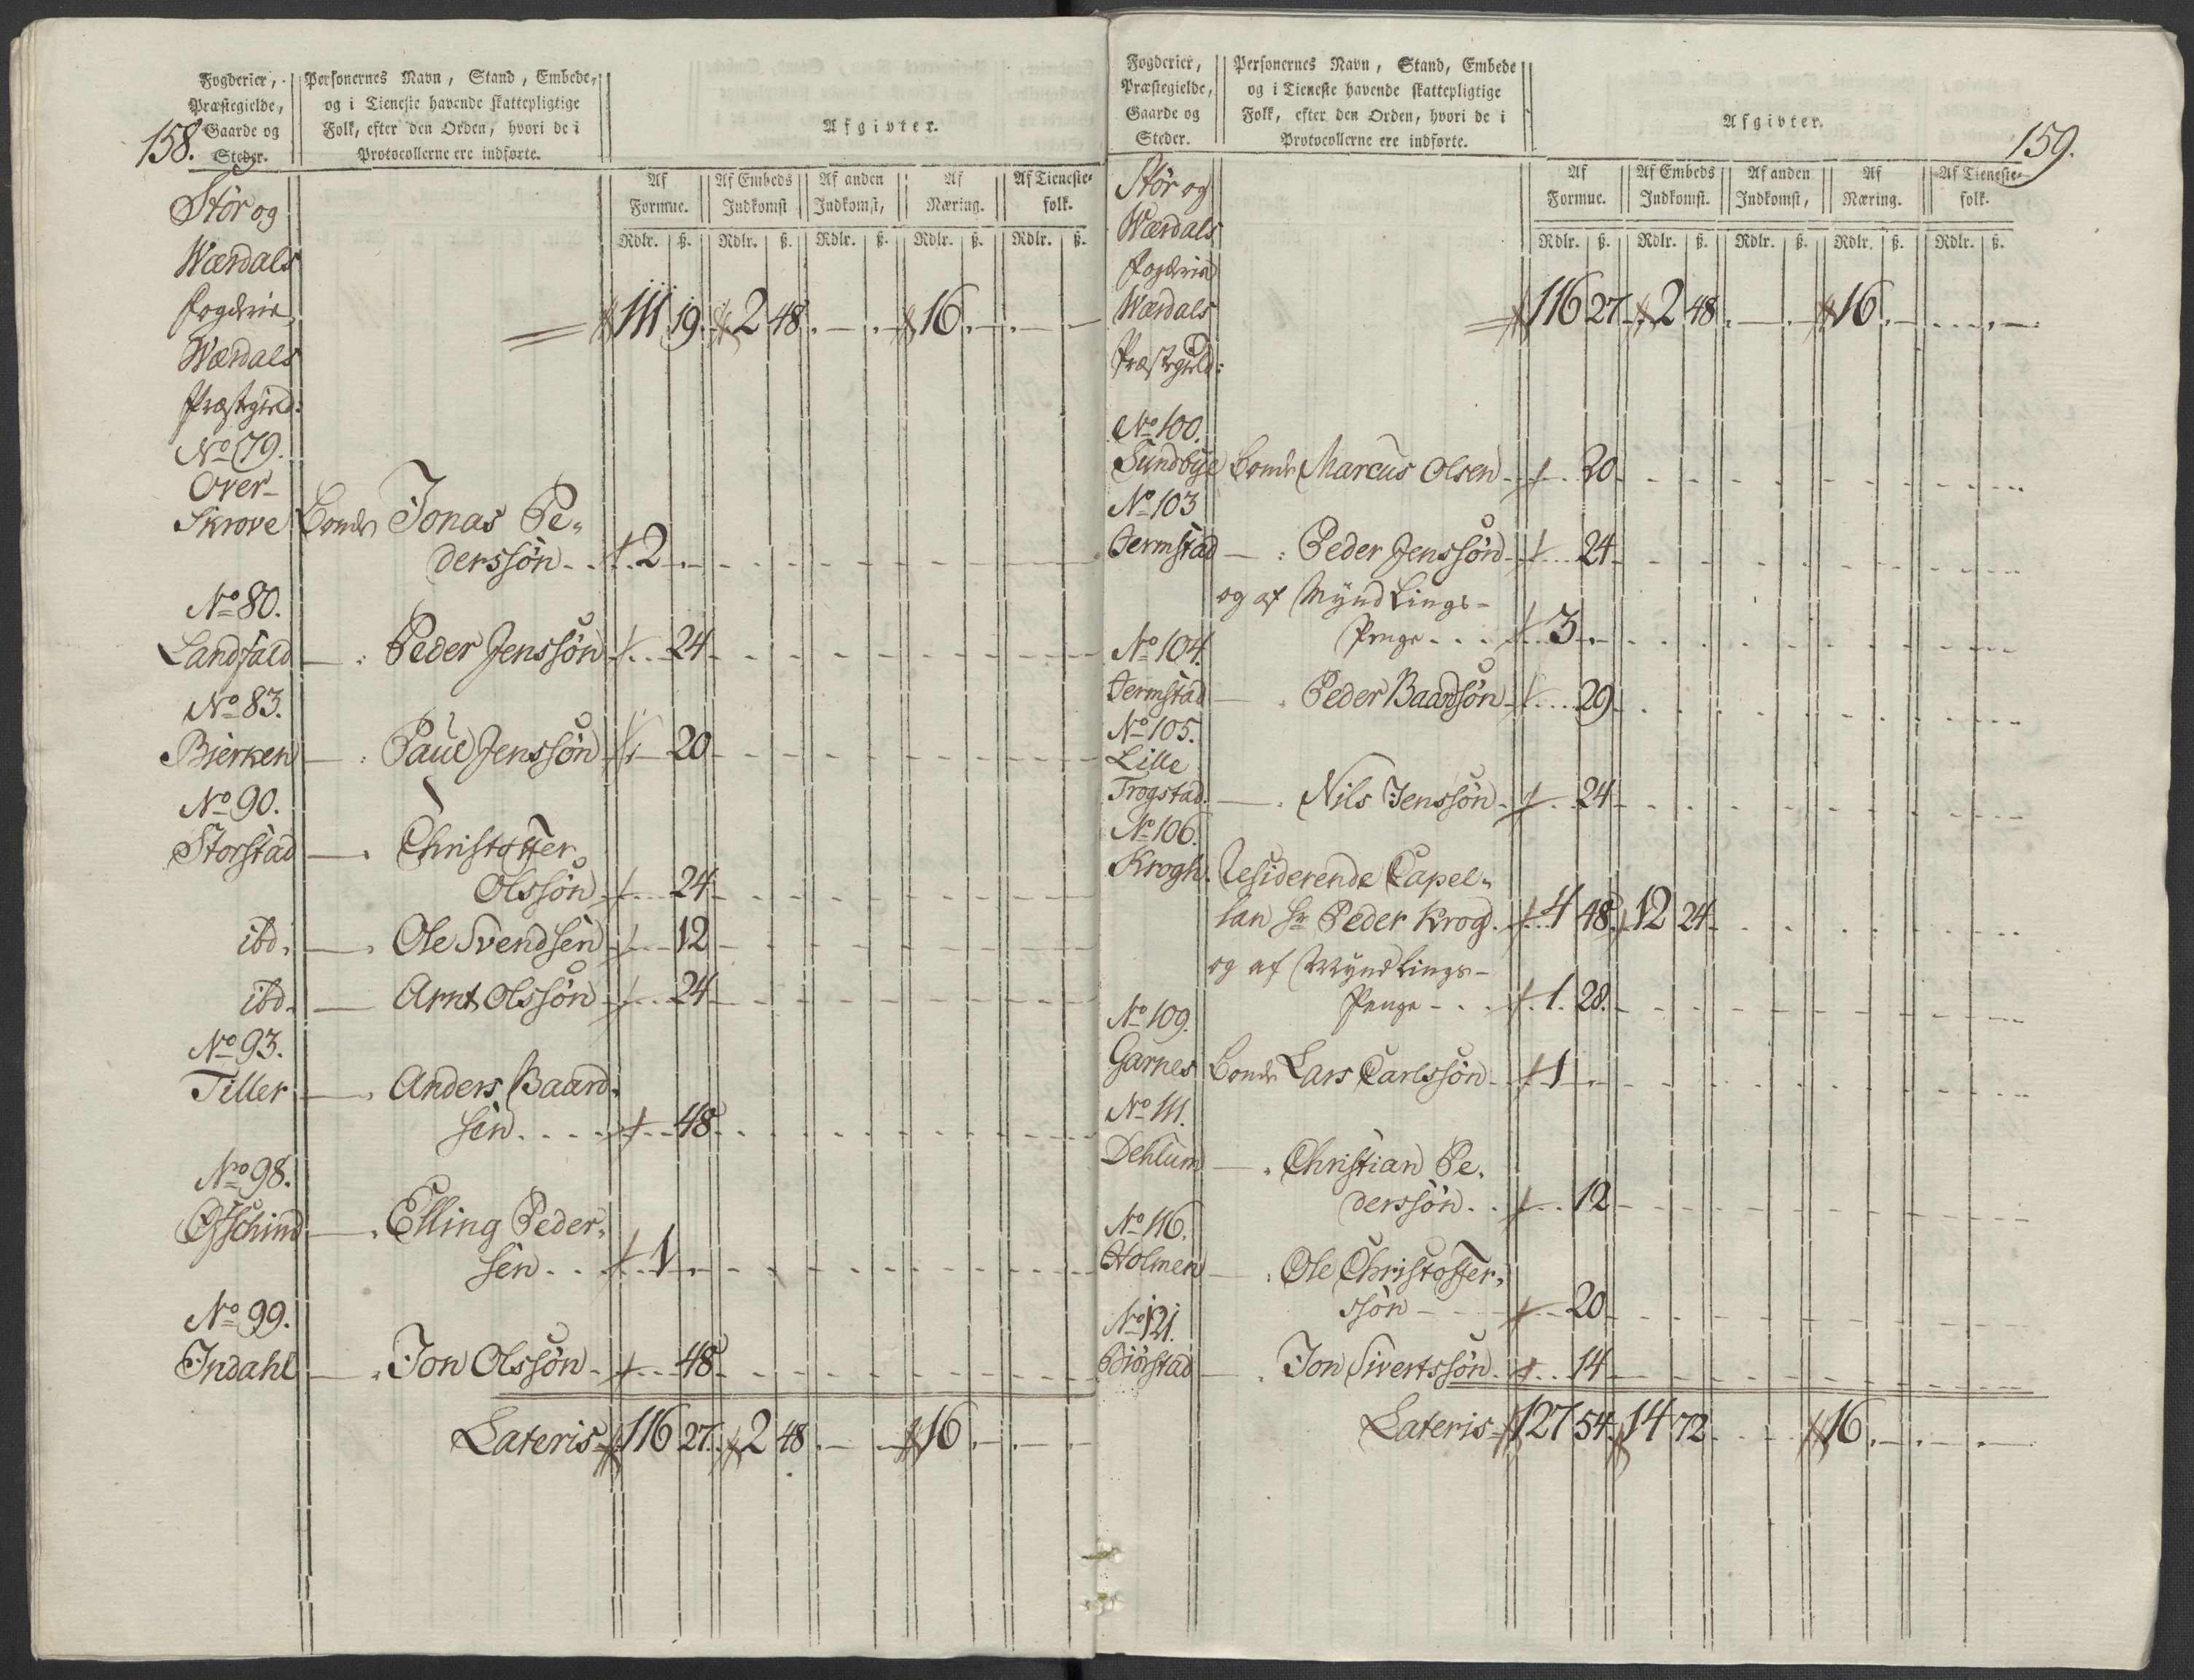 158.
Fogderier,
Præstegielde,
Gaarde og
Steder.
Personernes Navn, Stand, Embede,
og i Tieneste havende skattepligtige
Folk, efter den Orden, hvori de i
Protocollerne ere indførte.
Afgivter.
Af Formue. Af Embeds Indkomst Af anden Indkomst, Af Næring. Af Tieneste-folk.
Rdlr. ß. Rdlr. ß. Rdlr. ß. Rdlr. ß. Rdlr. ß.
Stör og
Wærdals
Fogderie
Wærdals
Præstgield:
111 19. 2 48. 16.
No 79.
Over-
Skrove Bonde Jonas Pe-
derssön 2
No 80.
Landfald — Peder Jenssön 24
No 83.
Bierken — Paul Jenssön 20
No 90.
Storstad — Christoffer
Olssön 24
ibd. — Ole Svendsen 12
ibd. — Arnt Olssön 24
No 93.
Tiller — Anders Baard-
sen 48
No 98.
— Elling Peder-
sen 1
No 99.
Indahl — Jon Olssön 48
Lateris 116 27. 2 48. 16.
159.
Fogderier,
Præstegielde,
Gaarde og
Steder.
Personernes Navn, Stand, Embede
og i Tieneste havende skattepligtige
Folk, efter den Orden, hvori de i
Protocollerne ere indførte.
Afgivter.
Af Formue. Af Embeds Indkomst. Af anden Indkomst, Af Næring. Af Tieneste-folk.
Rdlr. ß. Rdlr. ß. Rdlr. ß. Rdlr. ß. Rdlr. ß.
Stör og
Wærdals
Fogderie
Wærdals
Præstegield:
116 27. 2 48. 16.
No 100.
Sundbye Bonde Marcus Olsen 20
No 103
Jermstad — Peder Jenssön 24
og af Myndlings-
Penge 3
No 104.
Jermstad — Peder Baardsön 29
No 105.
Lille
Trogstad. — Nils Jenssön 24
No 106.
Krogh. Residerende Capel-
lan Hr Peder Krog. 4 48. 12 24
og af Myndlings-
Penge 1. 28.
No 109.
Garnes Bonde Lars Carlssön 1
No 111.
Dehlum — Christian Pe-
derssön. 12
No 116.
Holmen — Ole Christoffer-
ssön 20
No 121.
Biörstad — Jon Sivertssön 14
Lateris 127 54. 14 72 16.